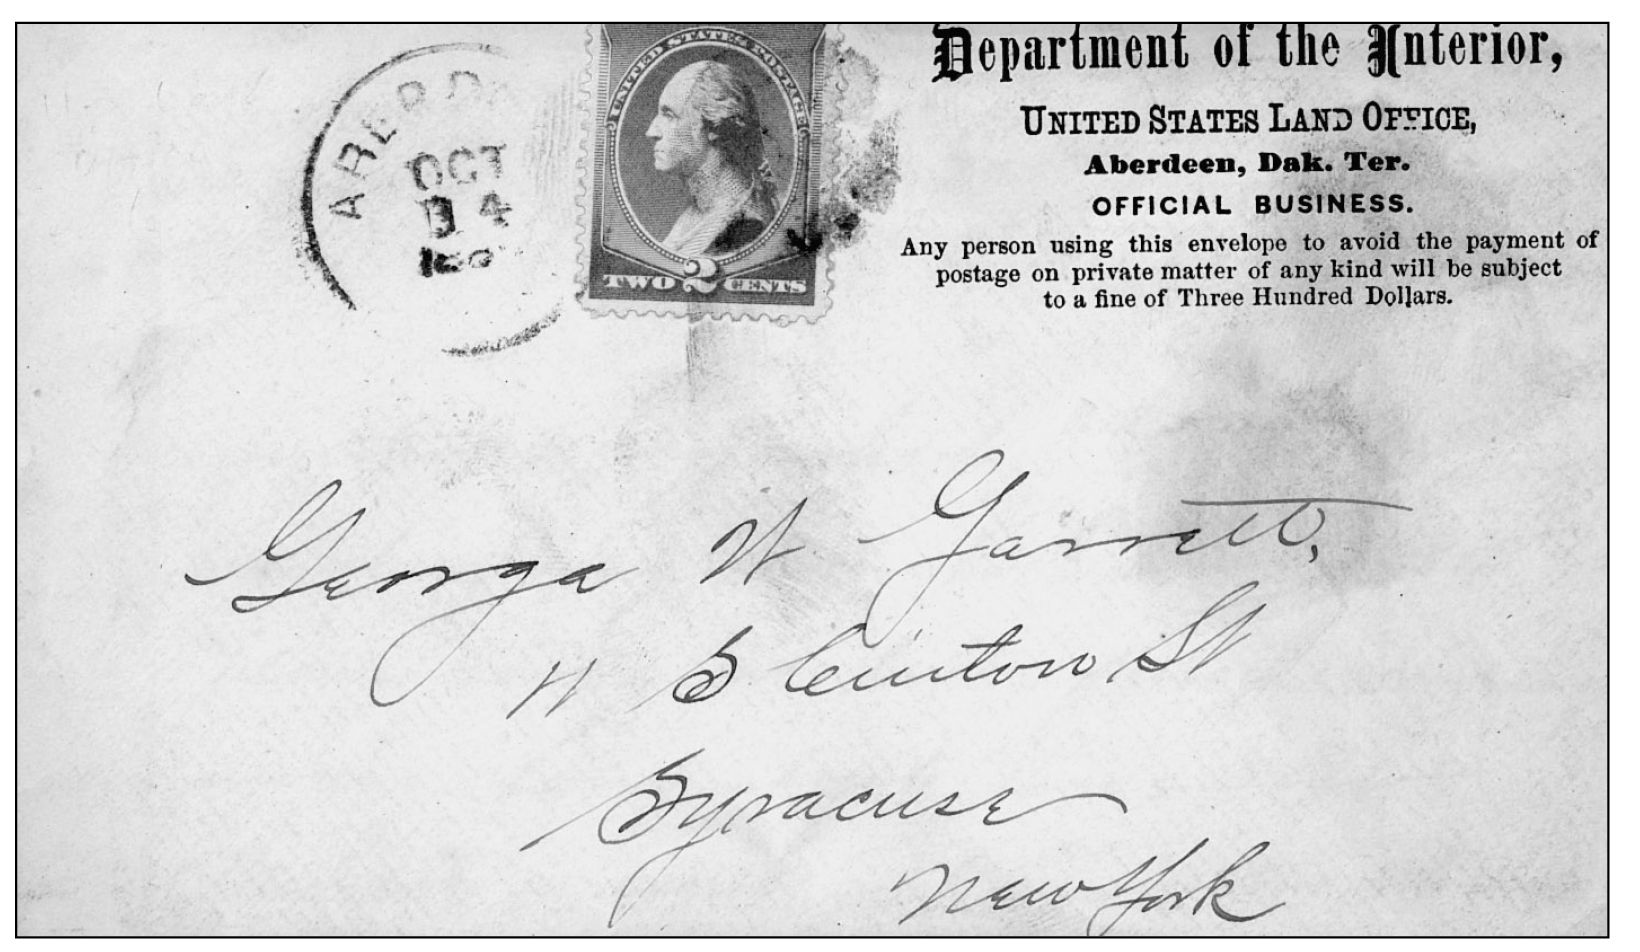 ABERD
OCT
14
188
UNITED STATES POSTAGE
TWO 2 CENTS
Department of the Interior,
UNITED STATES LAND OFFICE,
Aberdeen, Dak. Ter.
OFFICIAL BUSINESS.
Any person using this envelope to avoid the payment of
postage on private matter of any kind will be subject
to a fine of Three Hundred Dollars.
George W Garrett,
S Clinton St
Syracuse
New York